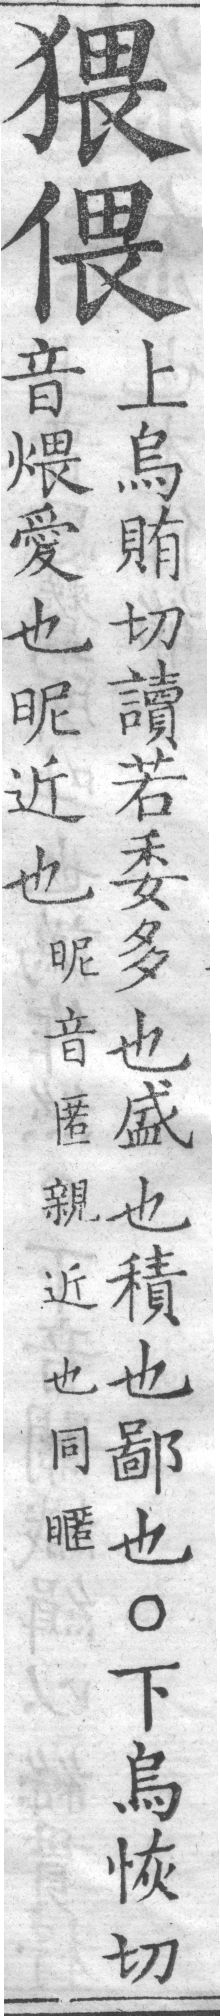 猥偎
上烏賄切讀若委多也盛也積也鄙也○下烏恢切
音煨愛也昵近也昵音匿親近也同暱